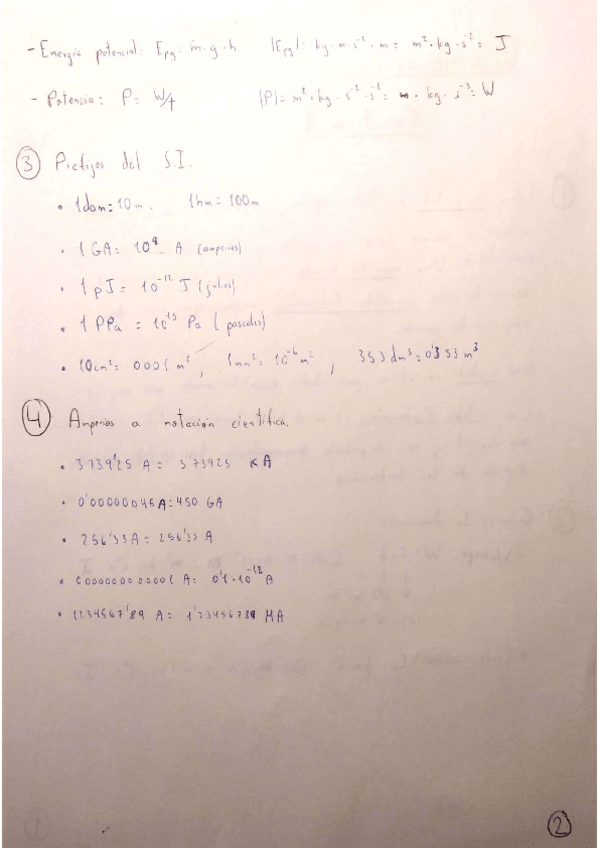 - Energía potencial: Epg: m·g·h |Epg|: kg·m·s⁻²·m = m²·kg·s⁻² = J
- Potencia: P= W/t |P|= m²·kg·s⁻²·s⁻¹ = m·kg·s⁻³ = W
③ Prefijos del S.I.
• 1dam=10m. 1hm=100m
• 1 GA= 10⁹ A (amperios)
• 1 pJ= 10⁻¹² J (julios)
• 1 PPa = 10¹⁵ Pa (pascales)
• 10cm²= 0'001 m², 1mm²= 10⁻⁶ m², 353dm³=0'353 m³
④ Amperios a notación científica.
• 3739'25 A= 3'73925 KA
• 0'00000045A=450 GA
• 256'33A= 256'33 A
A= 0'1·10⁻¹² A
• 1234567'89 A= 1'23456789 MA
②